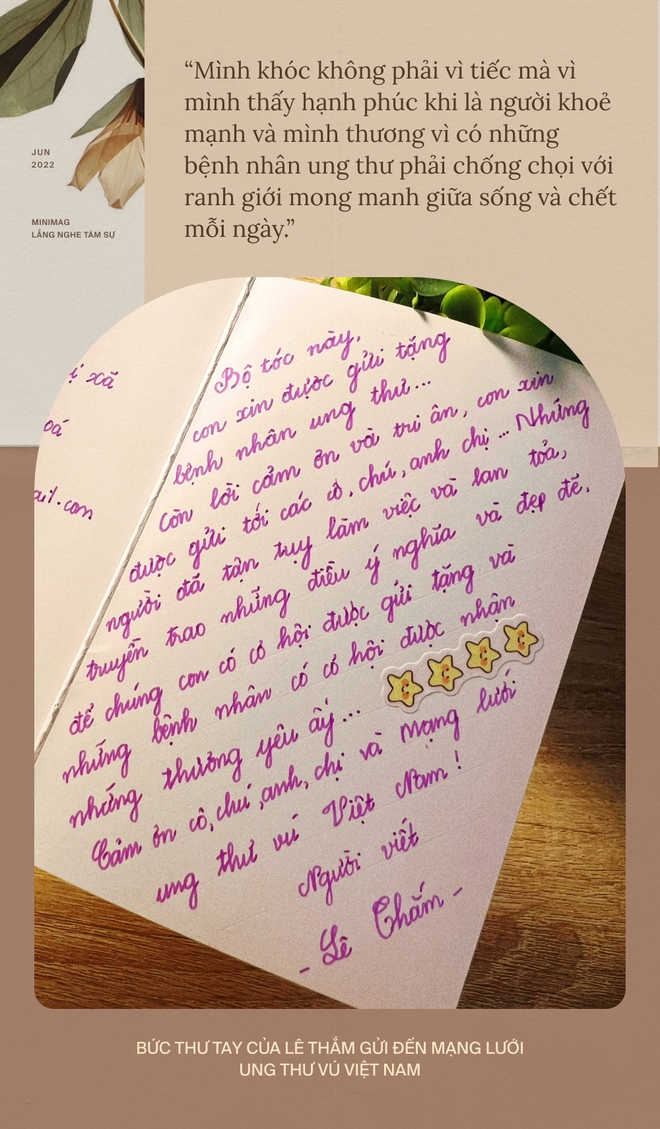 “Mình khóc không phải vì tiếc mà vì
mình thấy hạnh phúc khi là người khoẻ
mạnh và mình thương vì có những
bệnh nhân ung thư phải chống chọi với
ranh giới mong manh giữa sống và chết
mỗi ngày.”
JUN
2022
MINIMAG
LẮNG NGHE TÂM SỰ
xã
Bộ tóc này,
con xin được gửi tặng
bệnh nhân ung thư...
Còn lời cảm ơn và tri ân, con xin
được gửi tới các cô, chú, anh chị... Những
người đã tận tuỵ làm việc và lan toả,
truyền trao những điều ý nghĩa và đẹp đẽ,
để chúng con có cơ hội được gửi tặng và
những bệnh nhân có cơ hội được nhận
những thương yêu ấy...
Cảm ơn cô, chú, anh, chị và Mạng lưới
ung thư vú Việt Nam!
Người viết
- Lê Thắm -
BỨC THƯ TAY CỦA LÊ THẮM GỬI ĐẾN MẠNG LƯỚI
UNG THƯ VÚ VIỆT NAM